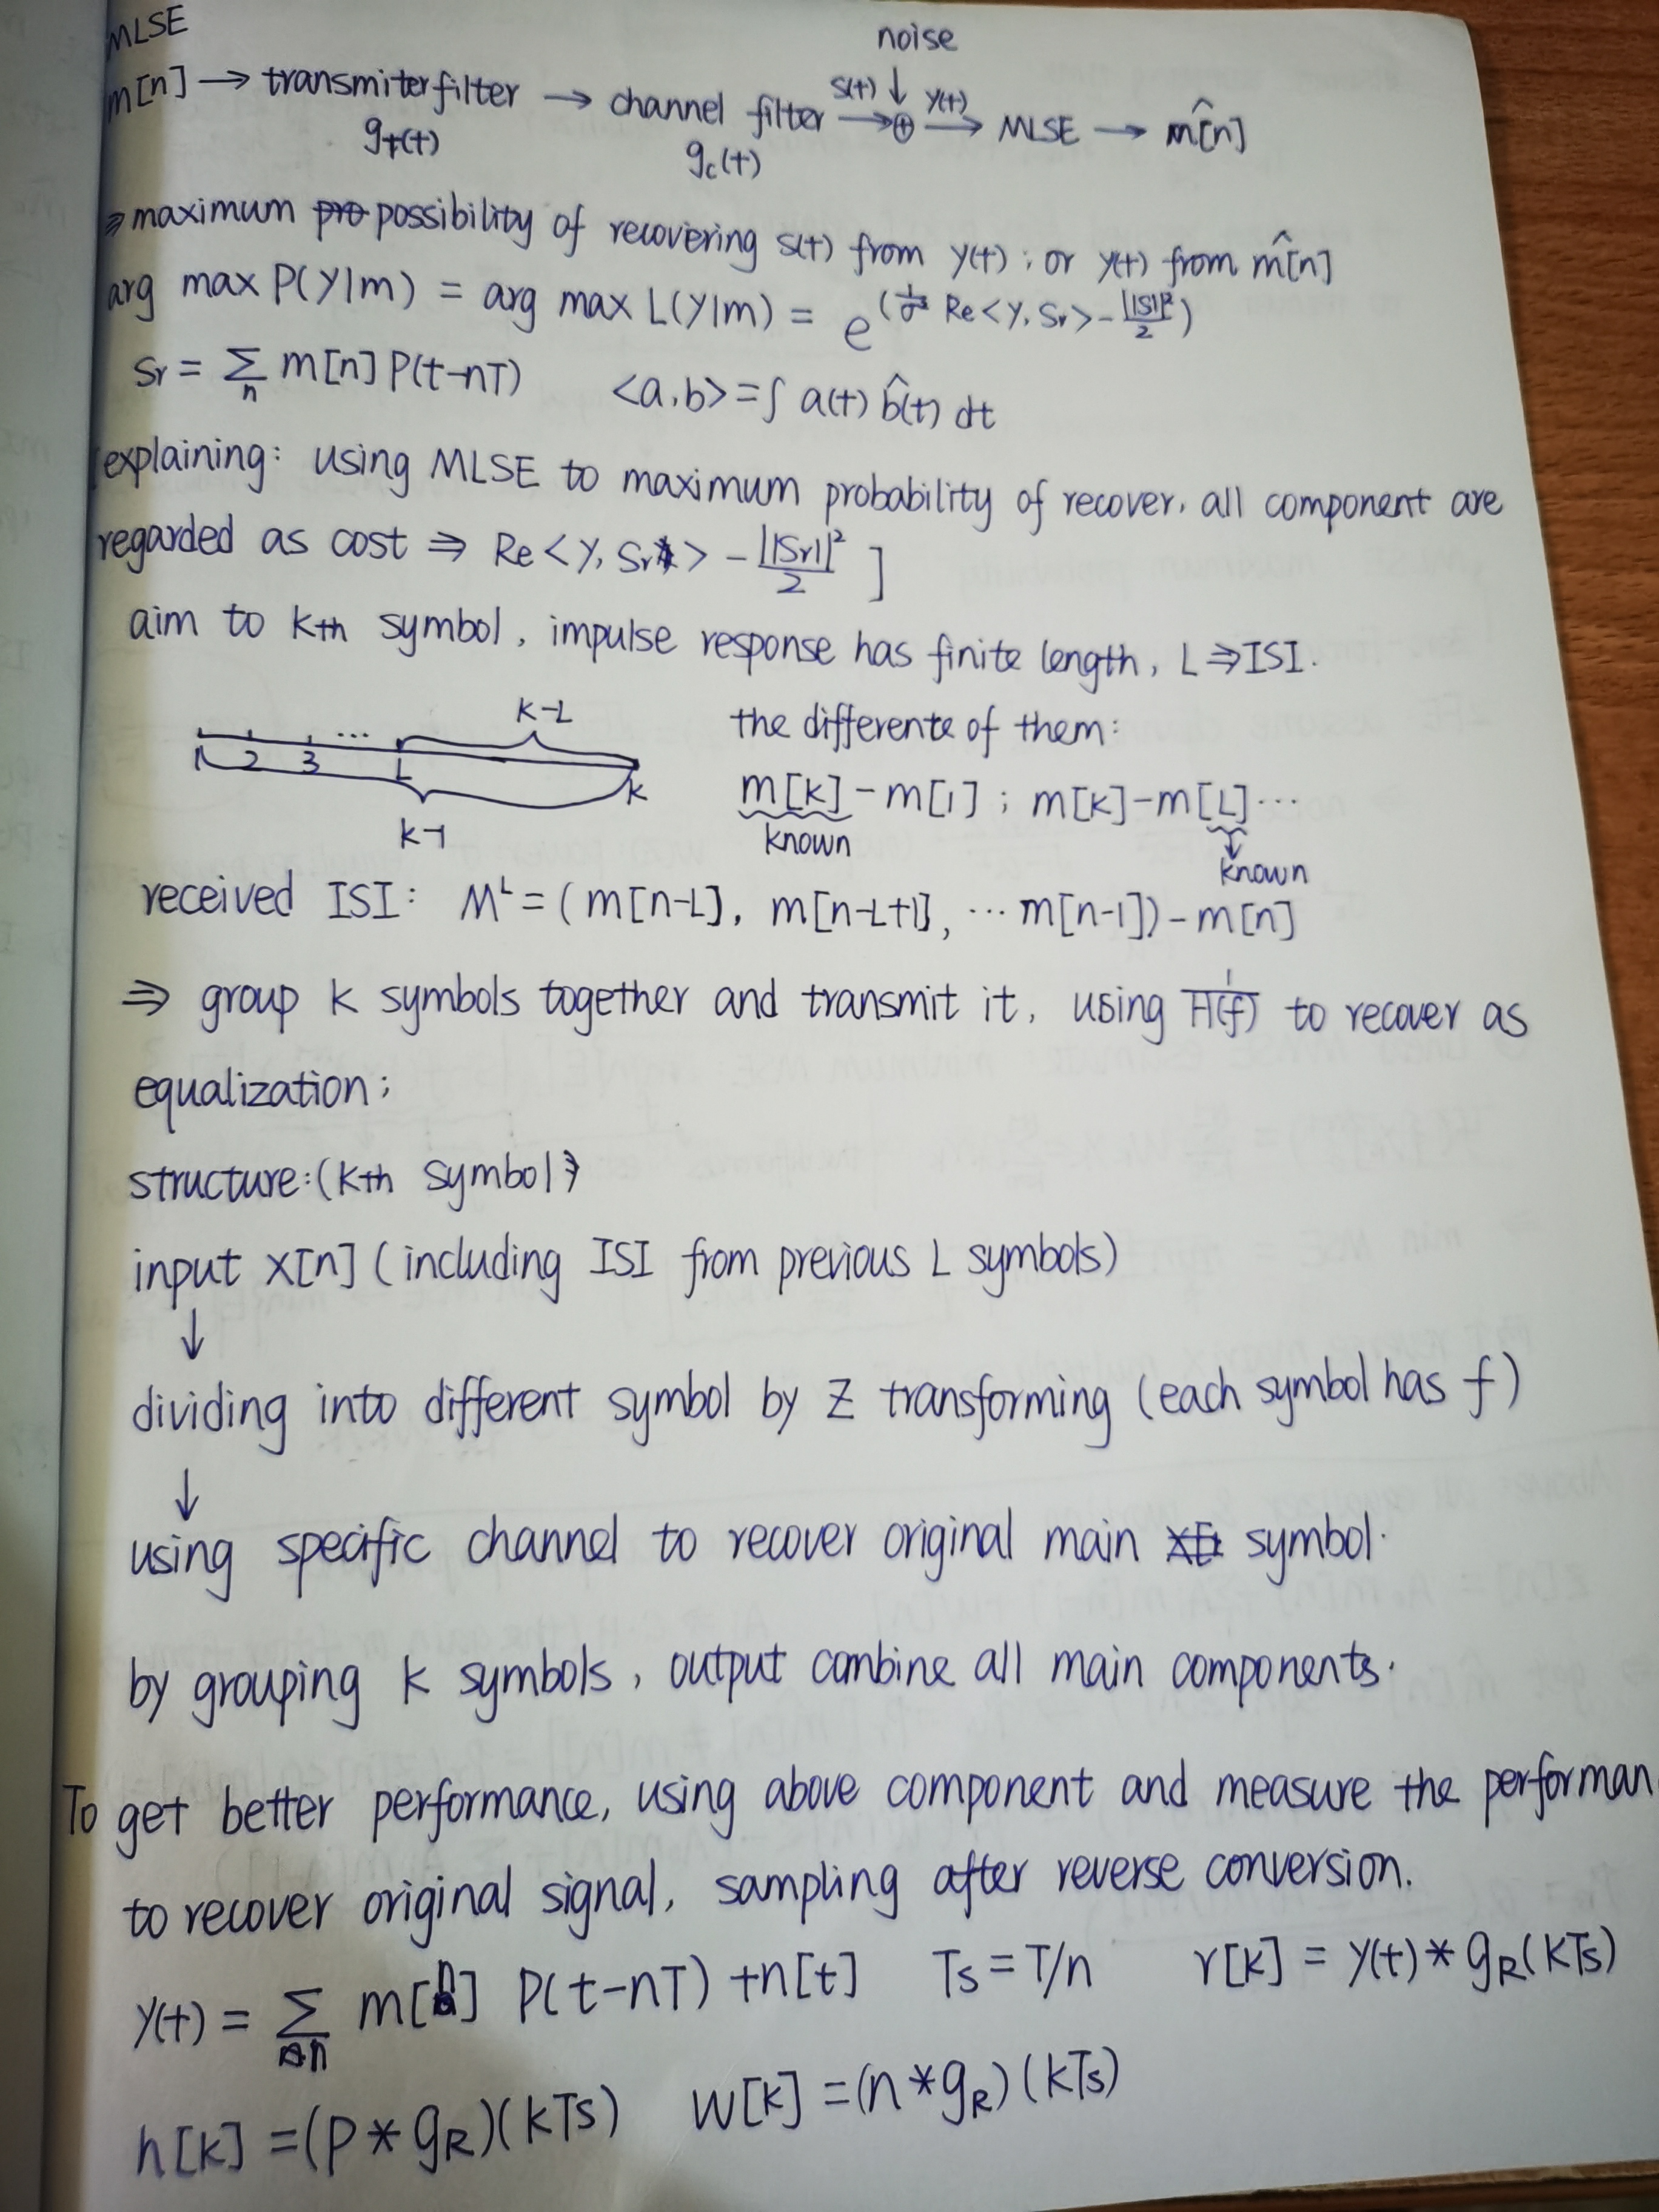 MLSE
noise
m[n] → transmiter filter → channel filter s(t) → ⊕ y(t) → MLSE → m̂[n]
gT(t) gc(t)
⇒ maximum possibility of recovering s(t) from y(t) ; or y(t) from m̂[n]
arg max P(Y|m) = arg max L(Y|m) = e^( Re<y, Sr> - ||S||²/2 )
Sr = Σn m[n] P(t-nT) <a,b> = ∫ a(t) b̂(t) dt
[explaining: using MLSE to maximum probability of recover, all component are
regarded as cost ⇒ Re<y, Sr> - ||Sr||²/2 ]
aim to kth symbol, impulse response has finite length, L ⇒ ISI.
k-L
1 2 3 ... L k
k-1
the differente of them:
m[k] - m[1] ; m[k] - m[L] ...
known known
received ISI: M^L = ( m[n-L], m[n-L+1], ... m[n-1]) - m[n]
⇒ group k symbols together and transmit it, using 1/H(f) to recover as
equalization;
structure: (kth symbol)
input x[n] ( including ISI from previous L symbols)
↓
dividing into different symbol by Z transforming (each symbol has f)
↓
using specific channel to recover original main symbol.
by grouping k symbols, output combine all main components.
To get better performance, using above component and measure the performan
to recover original signal, sampling after reverse conversion.
y(t) = Σn m[n] P(t-nT) + n[t] Ts = T/n r[k] = y(t) * gR(kTs)
h[k] = (p * gR)(kTs) w[k] = (n * gR)(kTs)